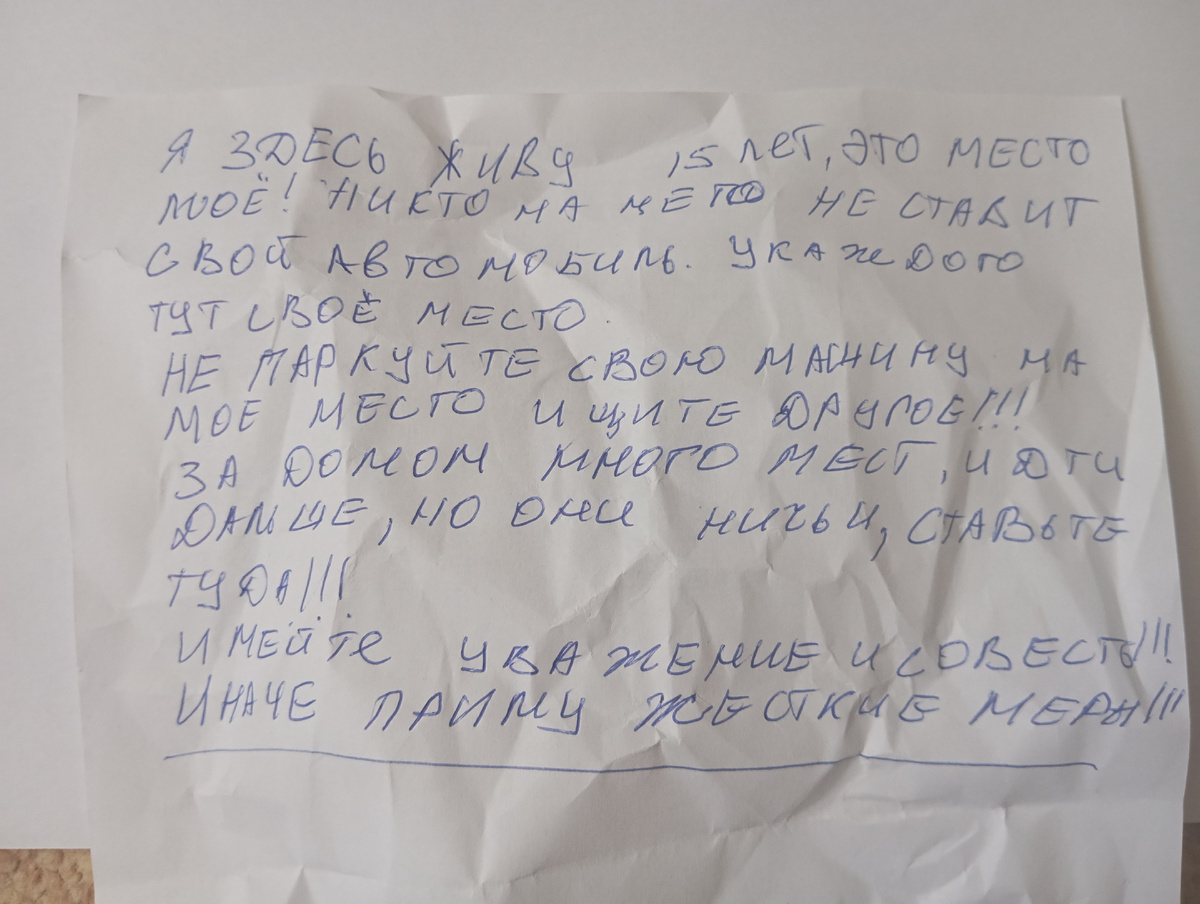 Я ЗДЕСЬ ЖИВУ 15 ЛЕТ, ЭТО МЕСТО
МОЁ! НИКТО НА НЕГО НЕ СТАВИТ
СВОЙ АВТОМОБИЛЬ. У КАЖДОГО
ТУТ СВОЁ МЕСТО.
НЕ ПАРКУЙТЕ СВОЮ МАШИНУ НА
МОЕ МЕСТО ИЩИТЕ ДРУГОЕ!!!
ЗА ДОМОМ МНОГО МЕСТ, ИДТИ
ДАЛЬШЕ, НО ОНИ НИЧЬИ, СТАВЬТЕ
ТУДА!!!
ИМЕЙТЕ УВАЖЕНИЕ И СОВЕСТЬ!!!
ИНАЧЕ ПРИМУ ЖЕСТКИЕ МЕРЫ!!!